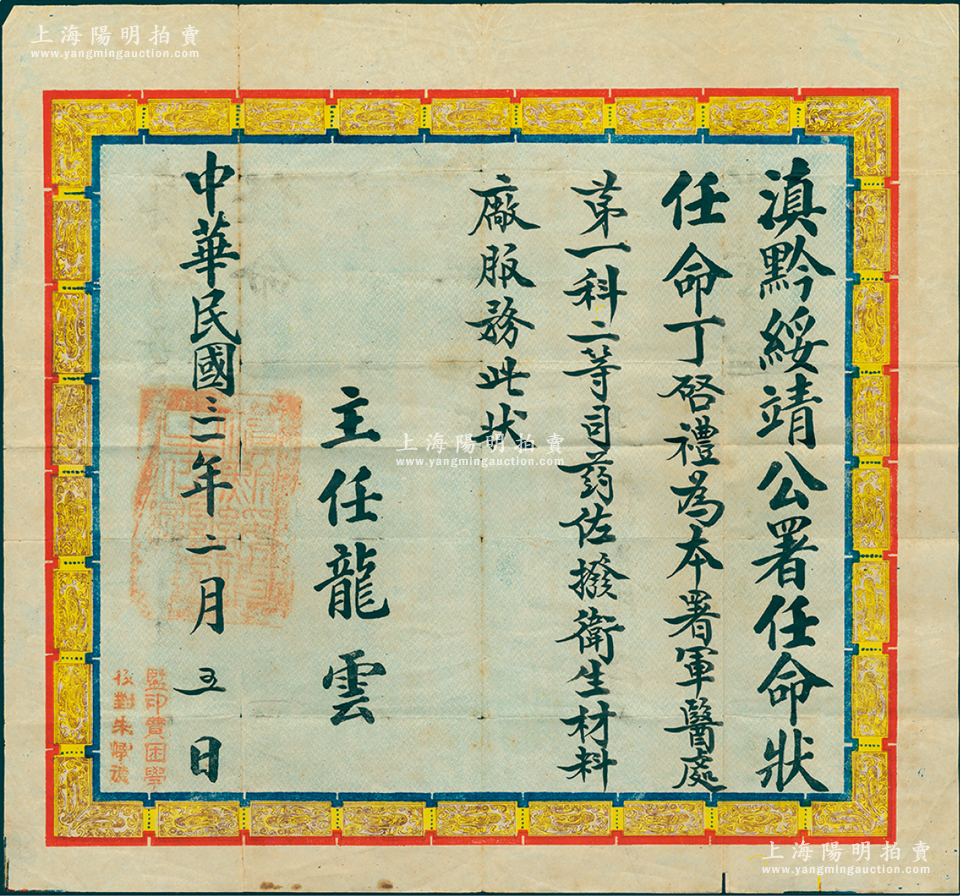 滇黔綏靖公署任命狀
任命丁啓禮為本署軍醫處
第一科二等司葯佐撥衛生材料
廠服務此狀
主任龍雲
中華民國三一年二月五日
監印費困學
校對朱
上海陽明拍賣
www.yangmingauction.com
上海陽明拍賣
www.yangmingauction.com
上海陽明拍賣
www.yangmingauction.com